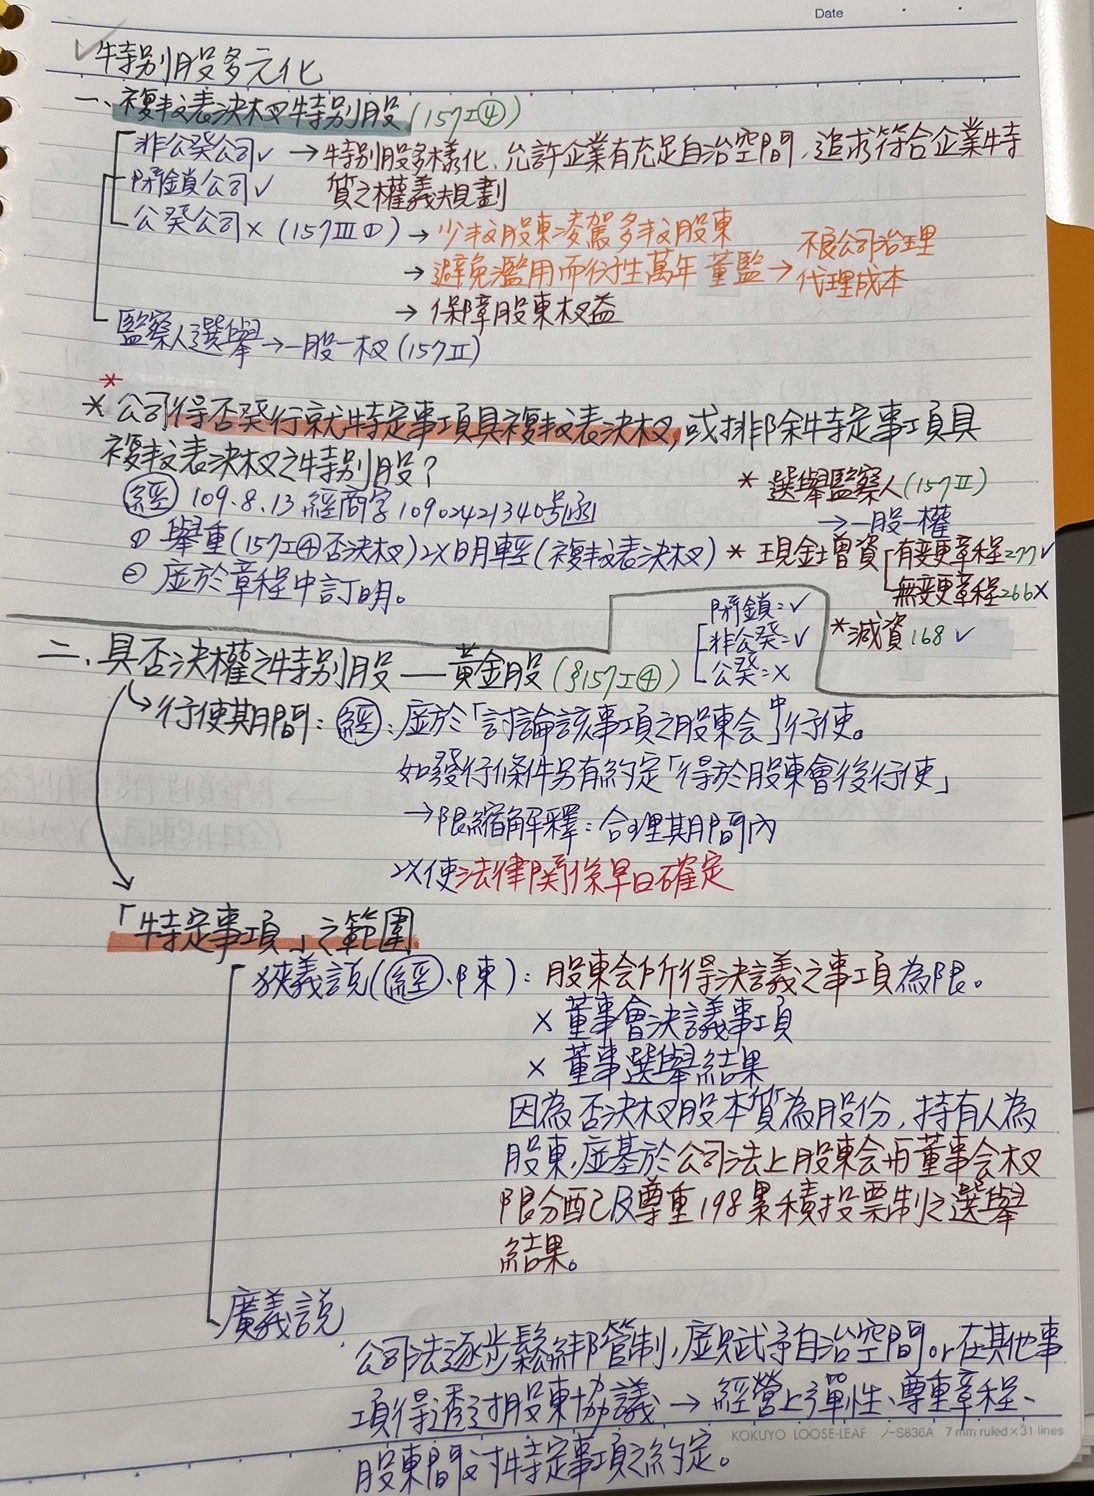 Date
特別股多元化
一、複數表決权特別股(157I④)
非公発公司✓ →特別股多樣化、允許企業有充足自治空間，追求符合企業特
閉鎖公司✓ 質之權義規劃
公発公司×(157III①)→少數股東凌駕多數股東
→避免濫用而衍生萬年董監→不良公司治理
代理成本
→保障股東权益
監察人選舉→一股一权(157II)
*
*公司得否発行就特定事項具複數表決权，或排除特定事項具
複數表決权之特別股？
*選舉監察人(157II)
→一股一權
經 109.8.13經商字10902421340号函
①舉重(157I④否決权)以明輕(複數表決权)
②應於章程中訂明。
*現金增資 有変更章程277✓
無変更章程266×
*減資168✓
閉鎖:✓
非公発:✓
公発:×
二、具否決權之特別股——黃金股(§157I④)
→行使期間:經:應於「討論該事項之股東会」中行使。
如發行條件另有約定「得於股東會後行使」
→限縮解釋:合理期間內
以使法律関係早日確定
「特定事項」之範圍
狹義說(經、陳):股東会所得決議之事項為限。
×董事會決議事項
×董事選舉結果
因為否決权股本質為股份，持有人為
股東，應基於公司法上股東会再董事会权
限分配以及尊重198累積投票制之選舉
結果。
廣義說
公司法逐步鬆綁管制，應賦予自治空間or在其他事
項得透过股東協議→經營上彈性、尊重章程、
KOKUYO LOOSE-LEAF ノ-S836A 7mm ruled×31 lines
股東間対特定事項之約定。